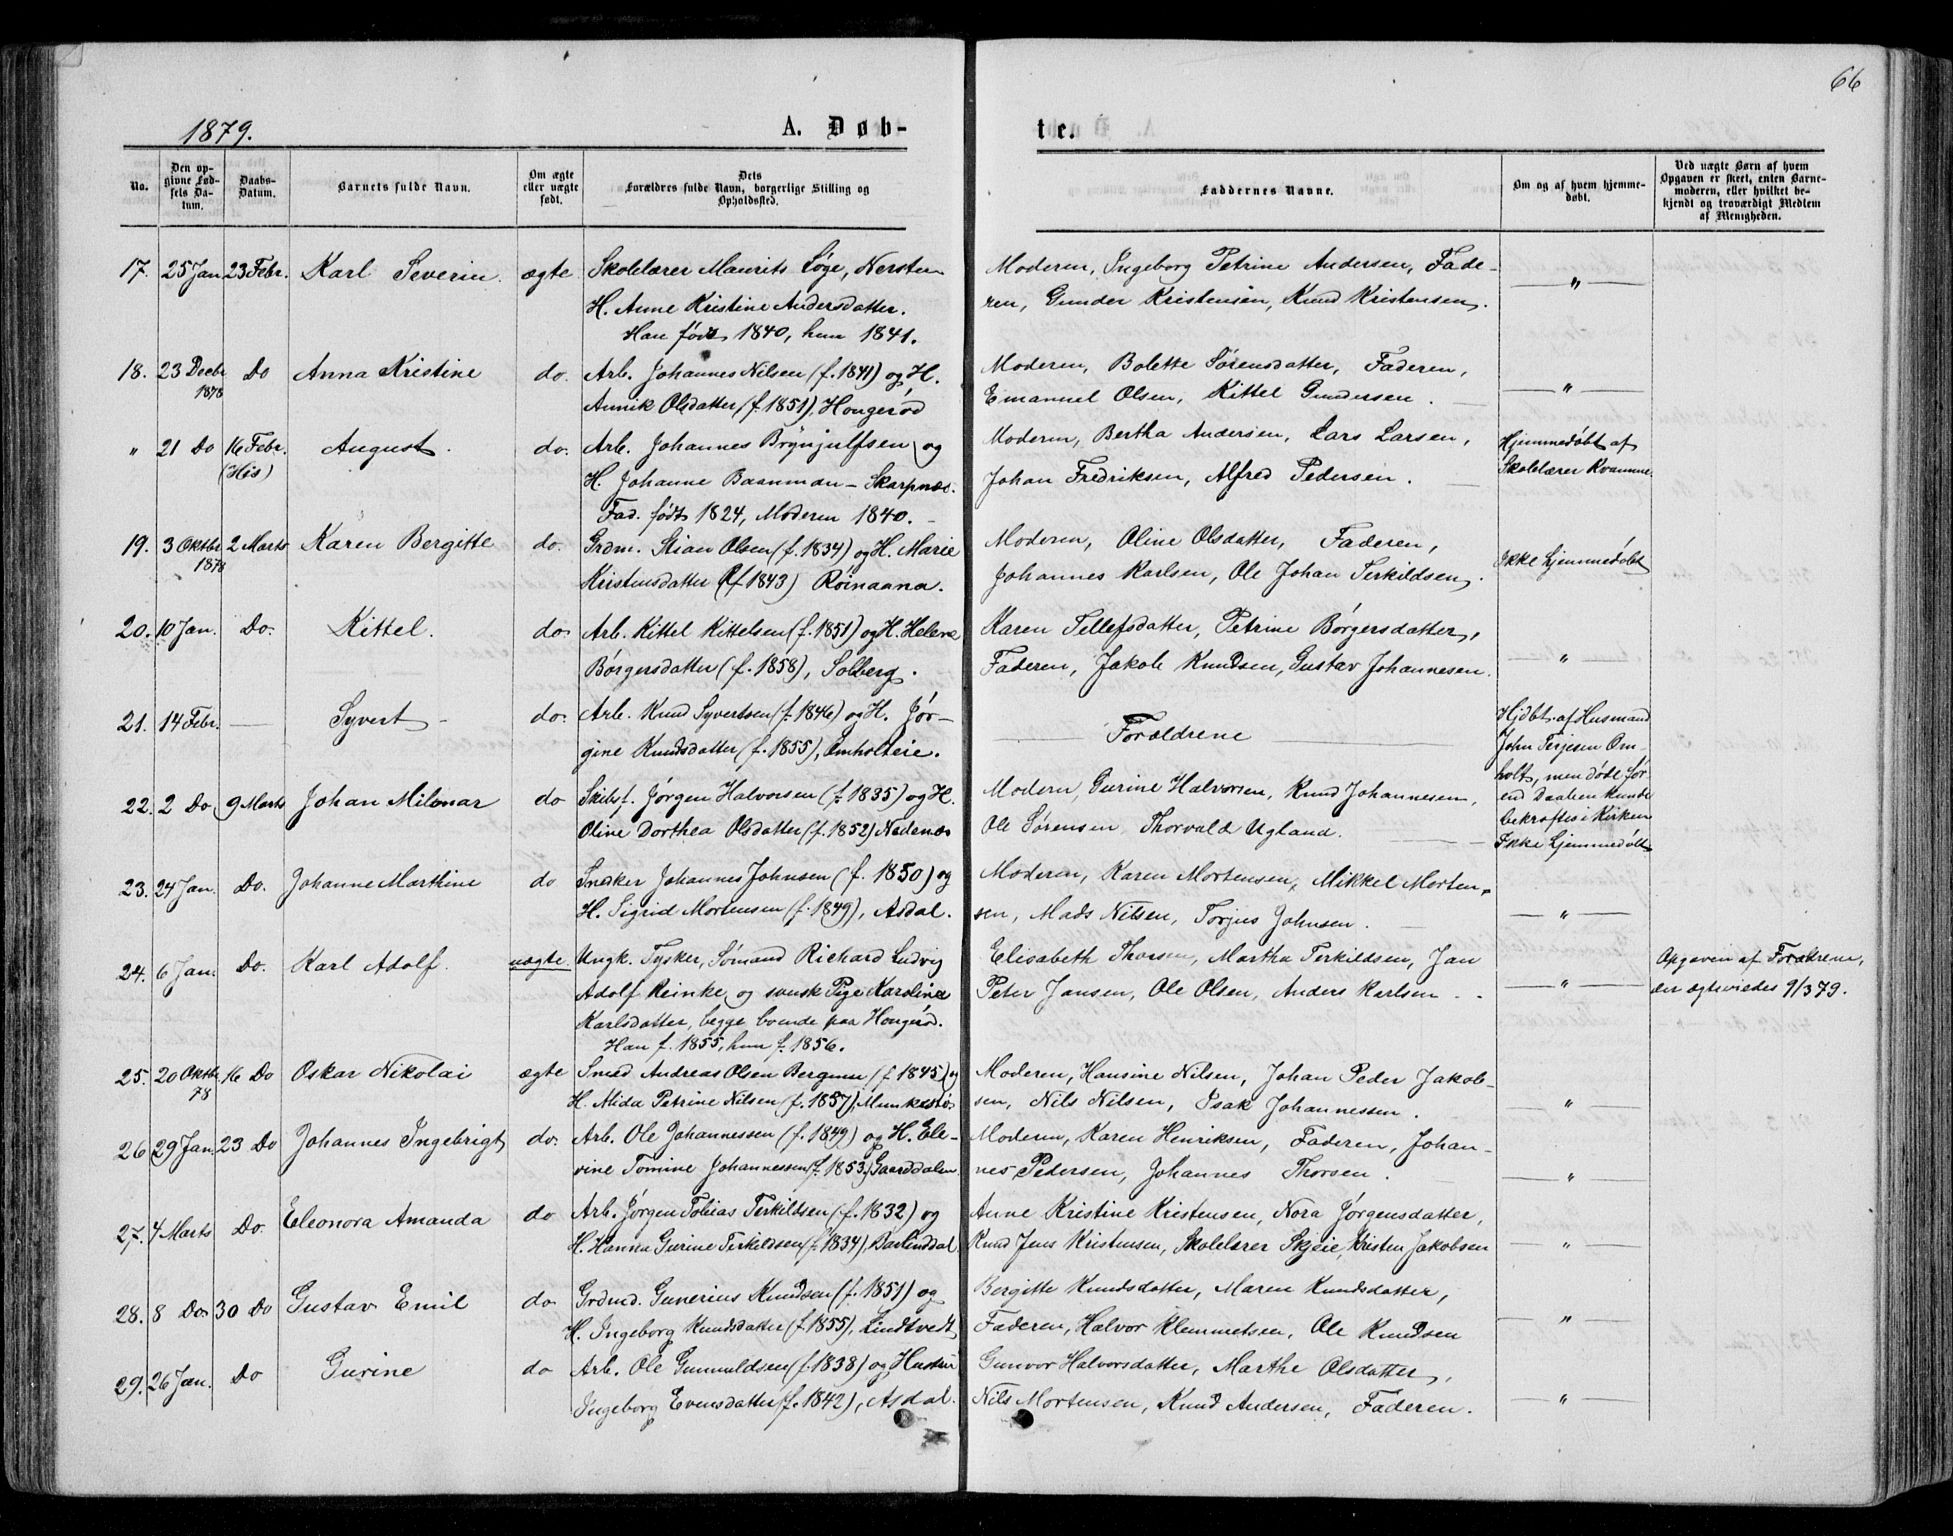 66
1879.
A. Døb-
te.
No.
Den op-
givne Fød-
sels Da-
tum.
Daabs-
Datum.
Barnets fulde Navn.
Om ægte
eller uægte
født.
Dets
Forældres fulde Navn, borgerlige Stilling og
Opholdssted.
Faddernes Navne.
Om og af hvem hjemme-
døbt.
Ved uægte Børn af hvem
Opgaven er skeet, enten Barne-
moderen, eller hvilket be-
kjendt og troværdigt Medlem
af Menigheden.
17. 25 Jan 23 Febr. Karl Severin. ægte Skolelærer Maurits Løge, Nersten
H. Anne Kristine Andersdatter.
Han født 1840, hun 1841.
Moderen, Ingeborg Petrine Andersen, Fade-
ren, Gunder Kristensen, Knud Kristensen.
— " —
18. 23 Decbr 1878 Do Anna Kristine do. Arb. Johannes Nilsen (f. 1841) og H.
Annik Olsdatter (f. 1851), Hongerød
Moderen, Bolette Sørensdatter, Faderen,
Emanuel Olsen, Kittel Gundersen.
— " —
" 21 Do 16 Febr. (His) August. do. Arb. Johannes Brynjulfsen og
H. Johanne Baanman - Skarpnæs.
Fad. født 1824, Moderen 1840. -
Moderen, Bertha Andersen, Lars Larsen,
Johan Fredriksen, Alfred Pedersen.
Hjemmedøbt af
Skolelærer Kvamme
19. 3 Oktbr 1878 2 Marts Karen Bergitte do. Grdm. Stian Olsen (f. 1834) og H. Marie
Kristensdatter (f 1843) Røinaana.
Moderen, Oline Olsdatter, Faderen,
Johannes Karlsen, Ole Johan Terkildsen.
Ikke hjemmedøbt
20. 10 Jan. Do. Kittel. do Arb. Kittel Kittelsen (f. 1851) og H. Helene
Børgersdatter (f. 1858), Solberg.
Karen Tellefsdatter, Petrine Børgersdatter,
Faderen, Jakob Knudsen, Gustav Johannesen.
— " —
21. 14 Febr. — Syvert - do. Arb. Knud Syvertsen (f. 1846) og H. Jør-
gine Knudsdatter (f. 1855), Omholteie.
— Forældrene —
Hjdbt. af Husmand
John Terjesen Om-
holt, men døde før-
end Daaben kunde
bekræftes i Kirken
22. 2 Do 9 Marts Johan Milonar do Skibsf. Jørgen Halvorsen (f. 1835) og H.
Oline Dorthea Olsdatter (f. 1852) Nedenæs
Moderen, Gurine Halvorsen, Knud Johannesen,
Ole Sørensen Thorvald Ugland.
Ikke hjemmedøbt
23. 24 Jan. Do. Johanne Marthine do Snedker Johannes Johnsen (f. 1850) og
H. Sigrid Mortensen (f. 1849), Asdal.
Moderen, Karen Mortensen, Mikkel Morten-
sen, Mads Nilsen, Torjus Johnsen.
— " —
24. 6 Jan. Do. Karl Adolf. uægte Ungk. Tysker, Sømand Richard Ludvig
Adolf Reinke og svensk Pige Karoline
Karlsdatter, begge boende paa Hongerød.
Han f. 1855, hun f. 1856.
Elisabeth Thorsen, Martha Terkildsen, Jan
Peter Jansen, Ole Olsen, Anders Karlsen - .
— " —
Opgaven af Forældrene,
der ægtevides 9/3 79.
25. 20 Oktbr 78 16 Do Oskar Nikolai ægte Smed Andreas Olsen Bergman (f 1845) og
H. Alida Petrine Nilsen (f. 1857), Munkestø
Moderen, Hansine Nilsen, Johan Peder Jakob-
sen, Nils Nilsen, Isak Johannessen.
— " —
26 29 Jan. 23 Do Johannes Ingebrigt do. Arb. Ole Johannessen (f. 1849) og H. Ele-
vine Tomine Johannessen (f. 1853) Gaarddalen
Moderen, Karen Henriksen, Faderen, Johan-
nes Pedersen, Johannes Thorsen.
— " —
27. 4 Marts Do Eleonora Amanda do Arb. Jørgen Tobias Terkildsen (f. 1832) og
H. Hanna Gurine Terkildsen (f. 1834), Barlinddal
Anne Kristine Kristensen, Nora Jørgensdatter,
Knud Jens Kristensen, Skolelærer Skjeie, Kristen Jakobsen
— " —
28. 8 Do 30 Do Gustav Emil do Grdmd. Gunerius Knudsen (f. 1851) og
H. Ingeborg Knudsdatter (f. 1855), Lindtvedt
Bergitte Knudsdatter, Maren Knudsdatter,
Faderen, Halvor Klemmetsen, Ole Knudsen
— " —
29. 26 Jan. Do Gurine do Arb. Ole Gunnuldsen (f. 1838) og Hustru
Ingeborg Evensdatter (f. 1842), Asdal.
Gunvor Halvorsdatter, Marthe Olsdatter,
Nils Mortensen, Knud Andersen, Faderen.
— " —